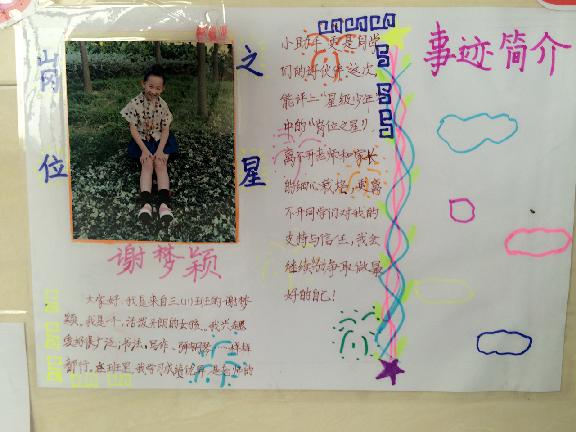 岗位
之星
谢梦颖
大家好,我是来自三(1)班的谢梦
颖。我是一个活泼开朗的女孩。我兴趣
爱好很广泛;书法、写作、弹钢琴……样样
都行。在班里,我学习成绩优异,是老师的
小助手,更是同学
们的好伙伴。这次
能评上“星级少年”
中的“岗位之星”,
离不开老师和家长
的细心栽培,更离
不开同学们对我的
支持与信任,我会
继续努力争取做最
好的自己!
事迹简介